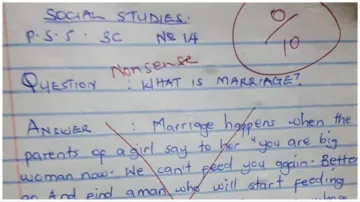 SOCIAL STUDIES.
P.S.S. SC № 14
0/10
Nonsense
QUESTION : WHAT IS MARRIAGE?
ANSWER : Marriage happens when the
parents of a girl say to her "you are big
woman now. We can't feed you again. Better
go And find a man who will start feeding